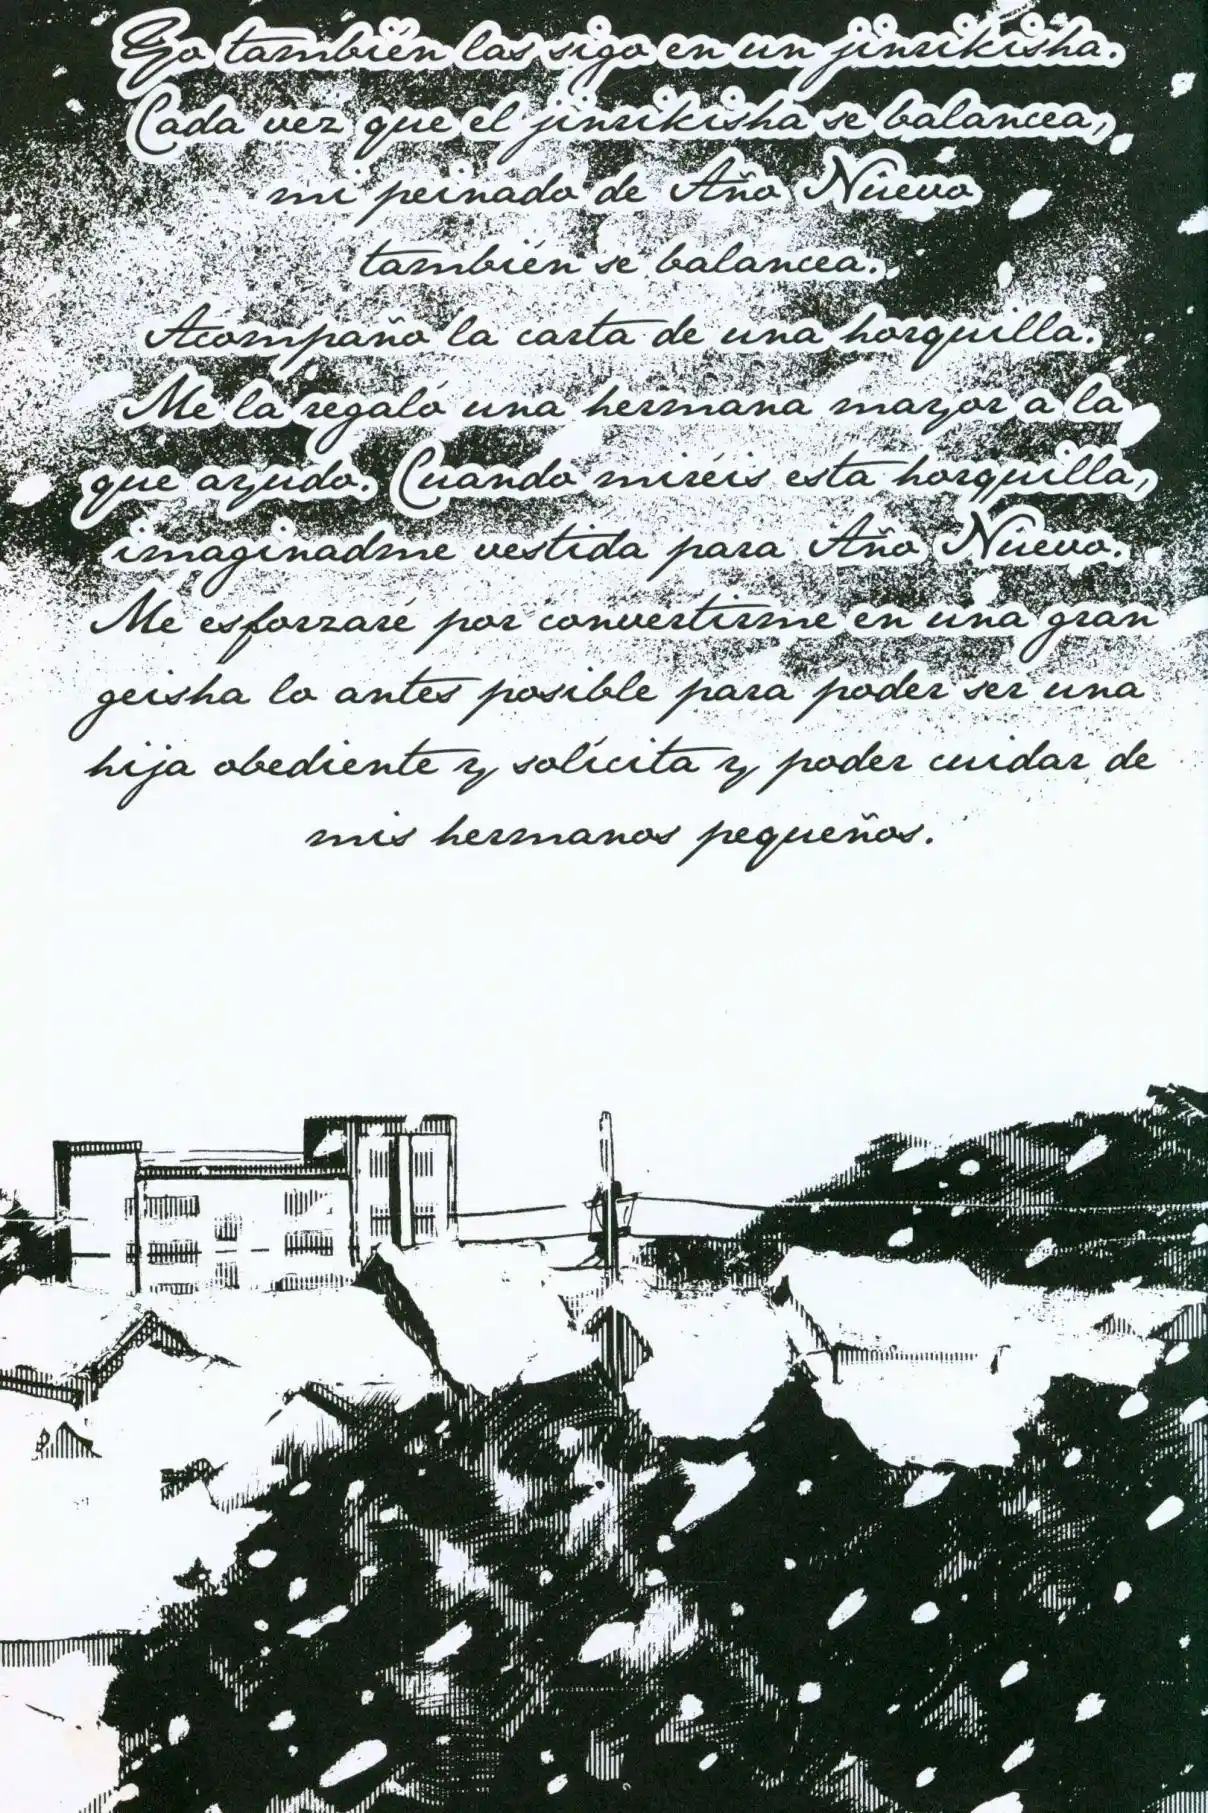 Yo también las sigo en un jinrikisha.
Cada vez que el jinrikisha se balancea,
mi peinado de Año Nuevo
también se balancea.
Acompaño la carta de una horquilla.
Me la regaló una hermana mayor a la
que ayudo. Cuando miréis esta horquilla,
imaginadme vestida para Año Nuevo.
Me esforzaré por convertirme en una gran
geisha lo antes posible para poder ser una
hija obediente y solícita y poder cuidar de
mis hermanos pequeños.